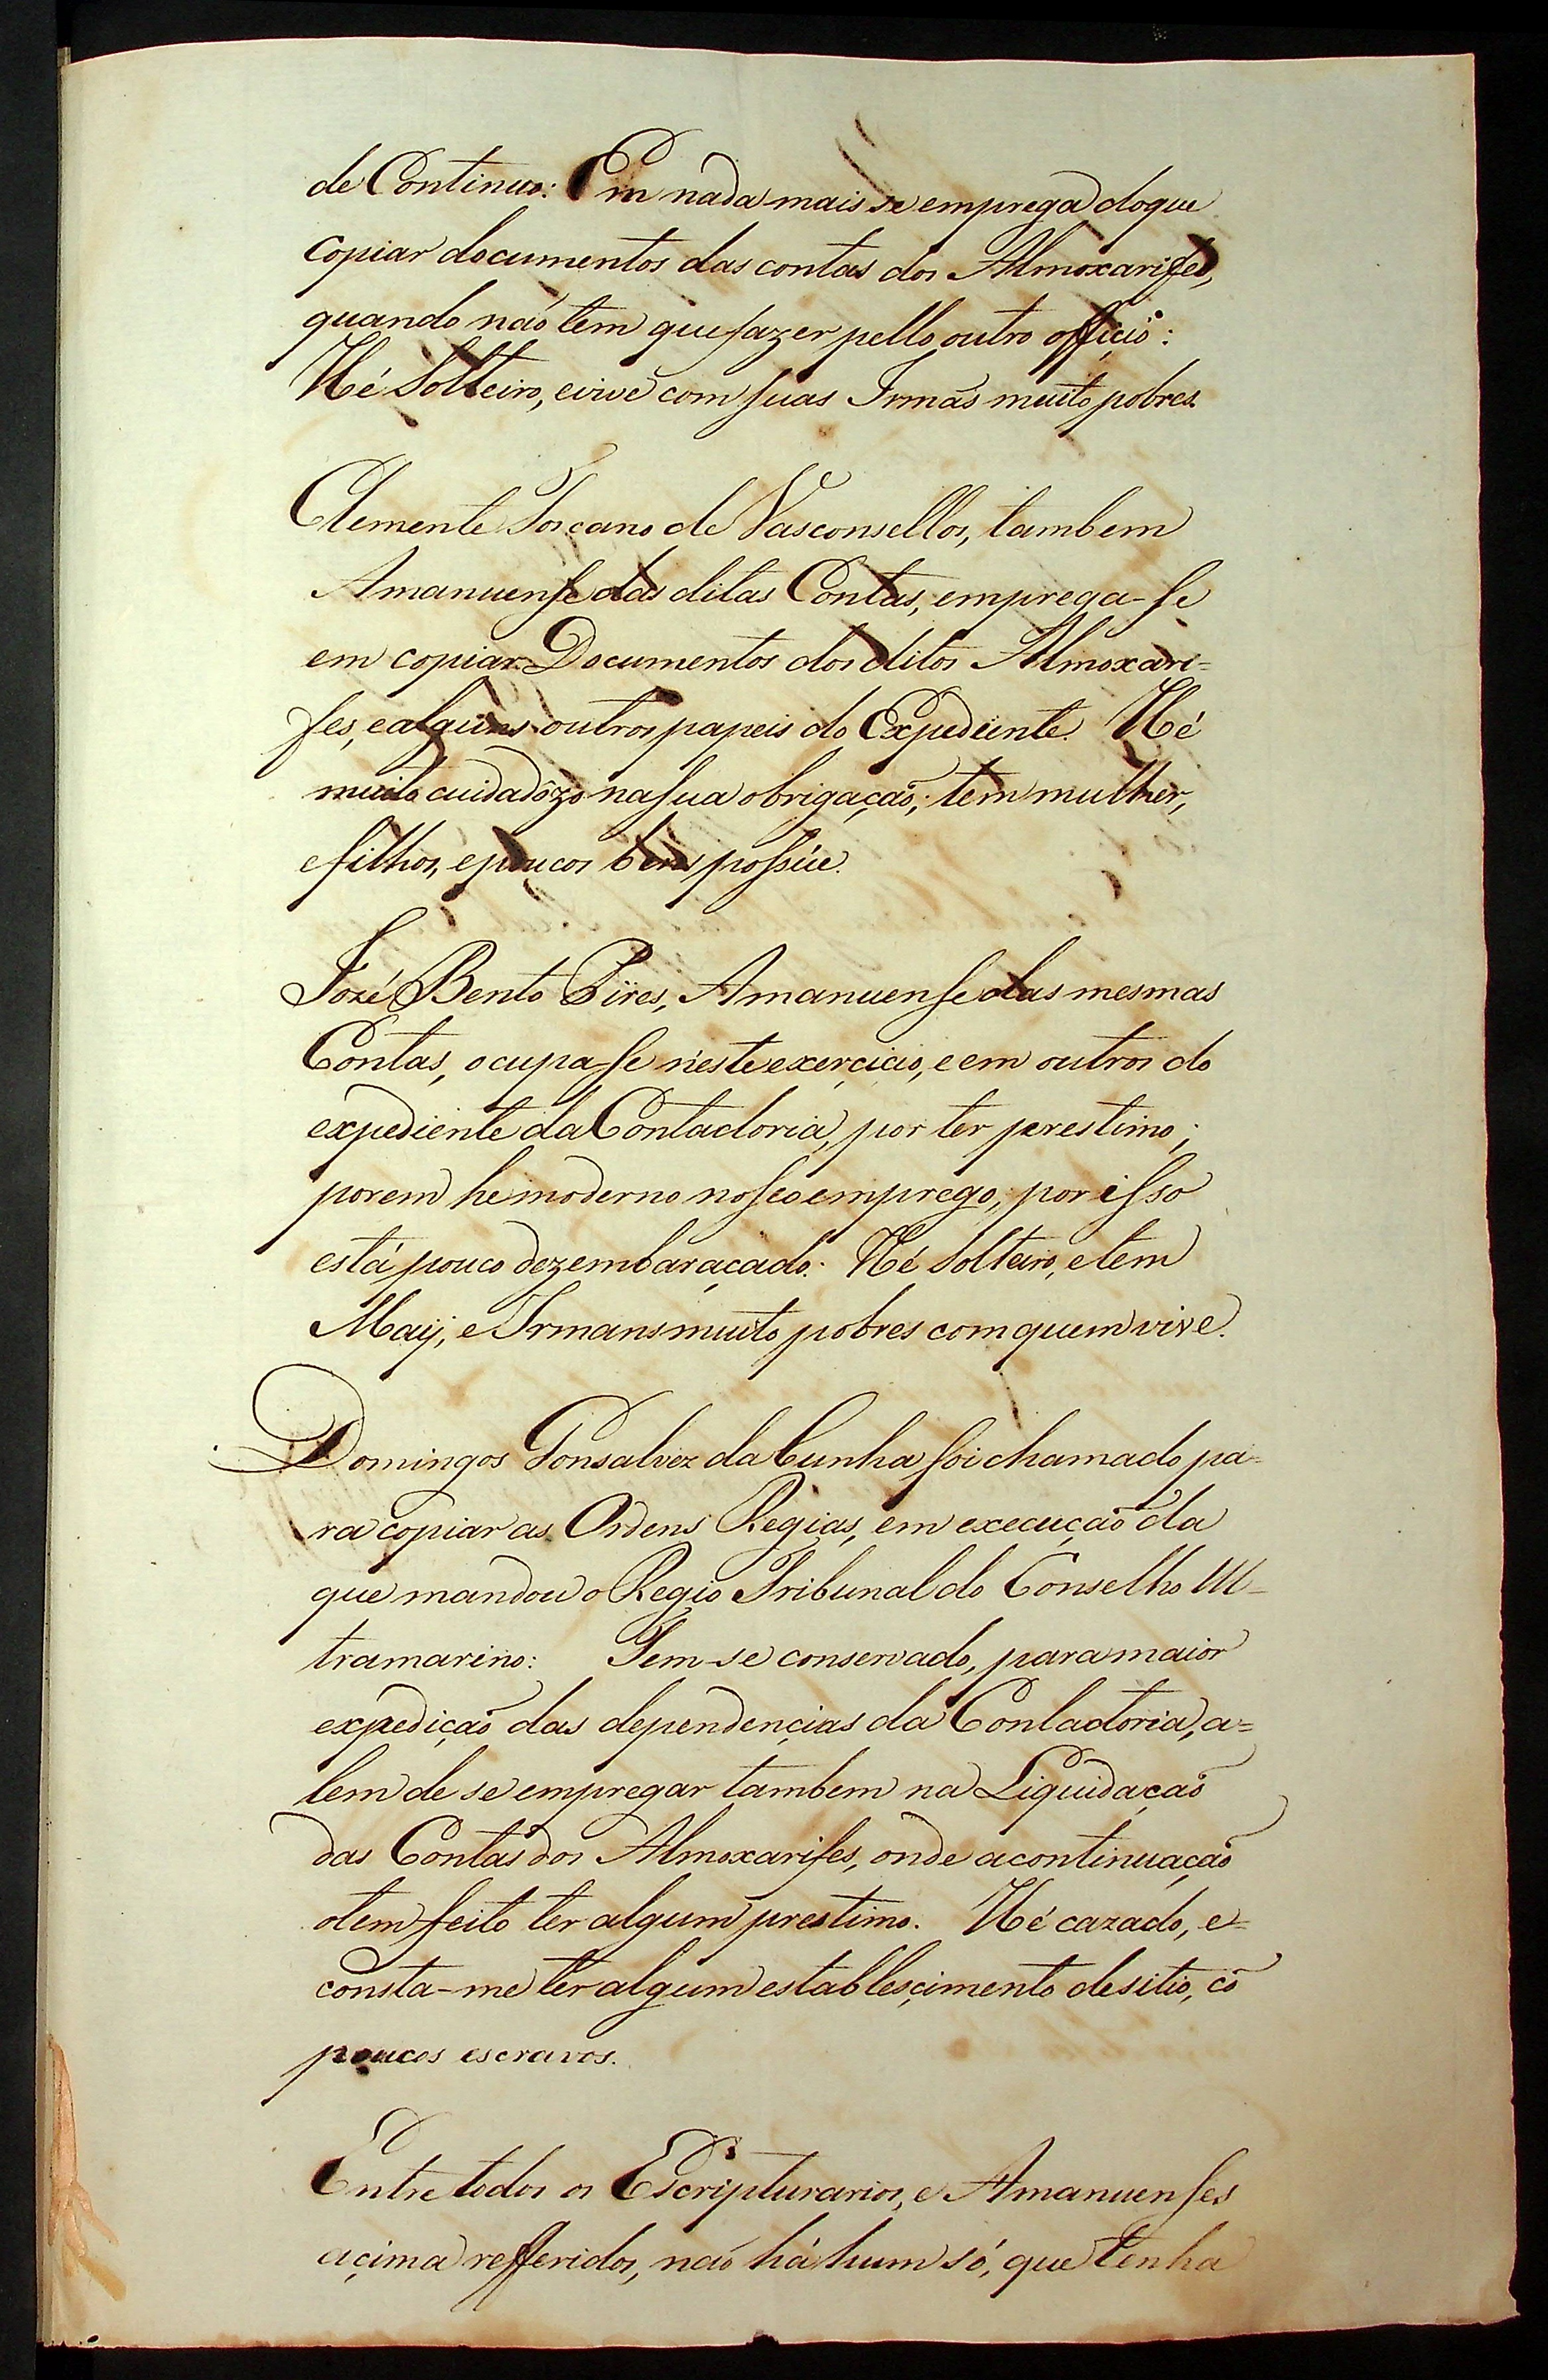 de Continuo: Em nada mais se emprega do que
copiar documentos das contas dos Almoxarifes,
quando não tem que fazer pello outro officio:
Hé Solteiro, e vive com suas Irmãs muito pobres.
Clemente Toscano de Vasconsellos, tambem
Amanuense das ditas Contas, emprega-se
em copiar Documentos dos ditos Almoxari=
fes, e alguns outros papeis do Expediente. Hé
muito cuidadôzo na sua obrigação; tem mulher,
e filhos, e poucos bens possúe.
Jozé Bento Pires, Amanuense das mesmas
Contas, ocupa-se n'este exerçicio, e em outros do
expediente da Contadoria, por ter prestimo;
porem he moderno no seo emprego, por isso
está pouco dezembaraçado: Hé Solteiro, e tem
Maij, e Irmans muito pobres com quem vive.
Domingos Gonsalvez da Cunha foi chamado pa=
ra copiar as Ordens Regias, em execução da
que mandou o Regio Tribunal do Conselho Ul=
tramarino: Tem-se conservado, para maior
expedição das dependençias da Contadoria, a=
lem de se empregar tambem na Liquidação
das Contas dos Almoxarifes, onde a continuação
o tem feito ter algum prestimo. Hé cazado, e=
consta-me ter algum establesçimento de sitio, cõ
poucos escravos.
Entre todos os Escripturarios, e Amanuenses
açima refferidos, não há hum só, que tenha